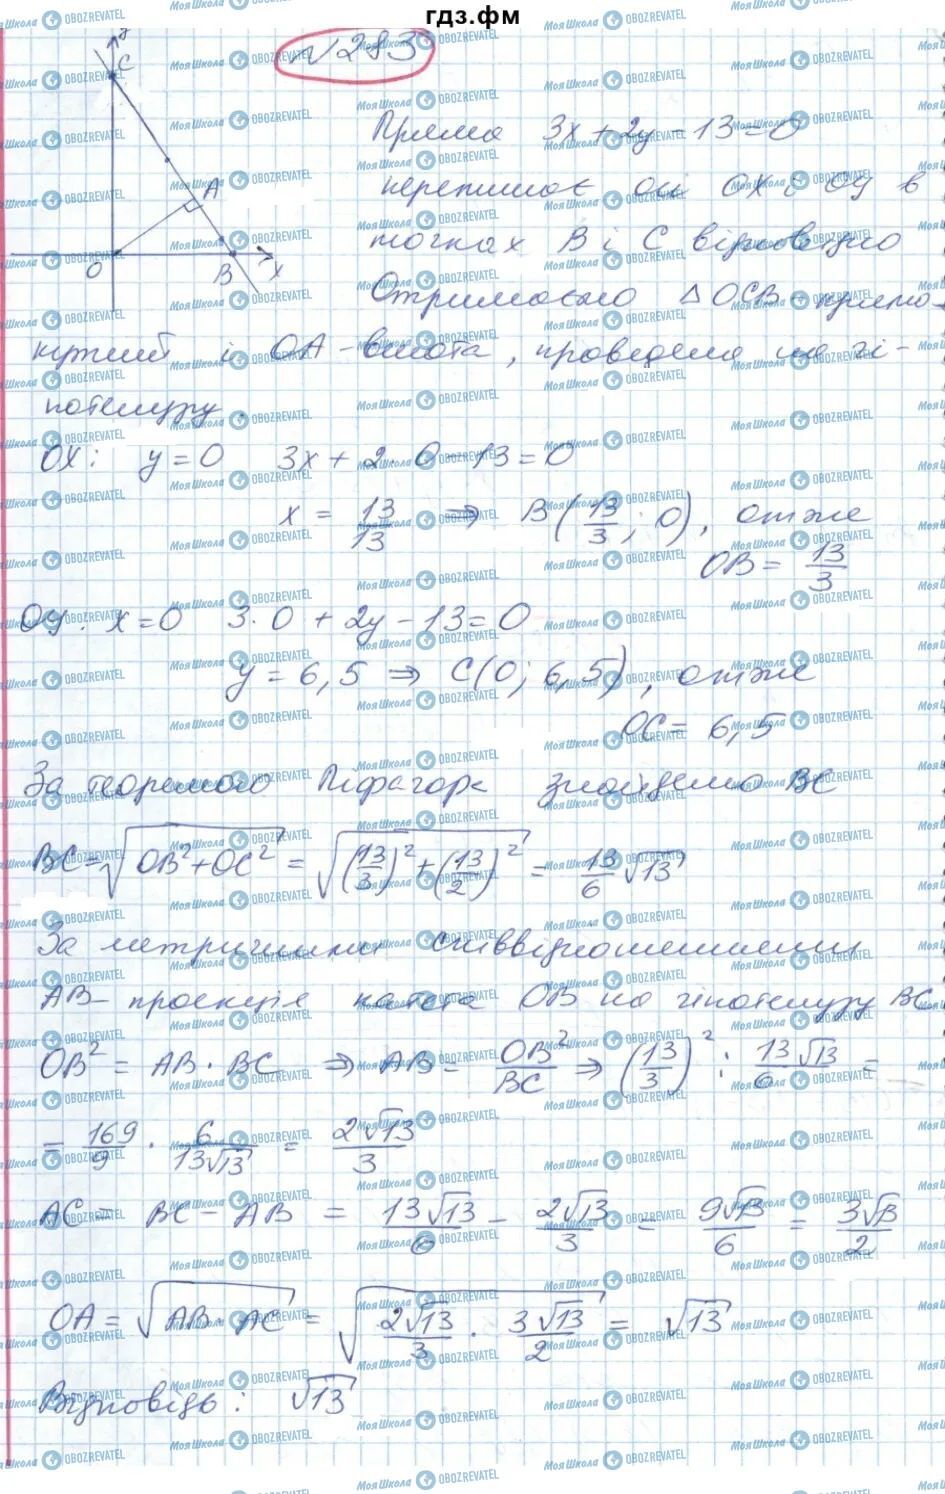 гдз.фм
√283
y
C
A
O
B
x
Пряма 3x + 2y - 13 = 0
перетинає осі OX і OY в
точках B і C відповідно
Отримаємо △OCB - прямо-
кутний і OA - висота, проведена на гі-
потенузу.
OX: y = 0 3x + 2·0 - 13 = 0
x = 13/13 ⇒ B(13/3; 0), отже
OB = 13/3
OY: x = 0 3·0 + 2y - 13 = 0
y = 6,5 ⇒ C(0; 6,5), отже
OC = 6,5
За теоремою Піфагора знайдемо BC
BC = √(OB² + OC²) = √((13/3)² + (13/2)²) = 13/6 √13
За метричними співвідношеннями
AB - проекція катета OB на гіпотенузу BC
OB² = AB · BC ⇒ AB = OB²/BC ⇒ (13/3)² : 13√13/6 =
= 169/9 · 6/13√13 = 2√13/3
AC = BC - AB = 13√13/6 - 2√13/3 = 9√13/6 = 3√13/2
OA = √(AB · AC) = √(2√13/3 · 3√13/2) = √13
Відповідь: √13
МояШкола OBOZREVATEL